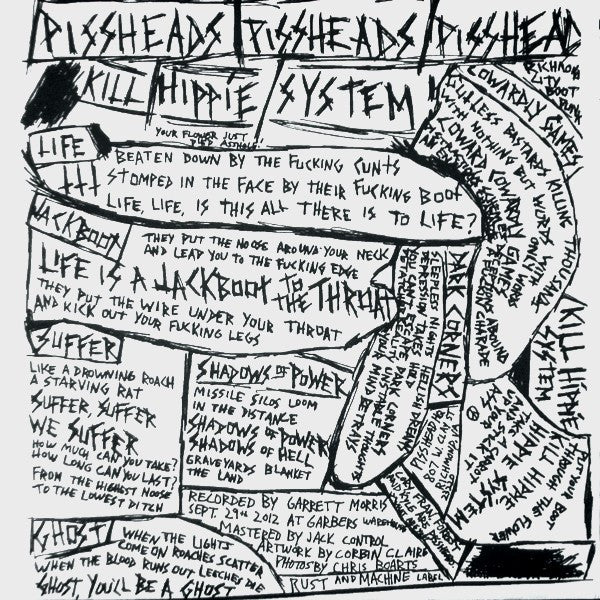 PISSHEADS PISSHEADS PISSHEAD
KILL HIPPIE SYSTEM
YOUR FLOWER JUST
DIED ASSHOLE!
LIFE
BEATEN DOWN BY THE FUCKING CUNTS
STOMPED IN THE FACE BY THEIR FUCKING BOOT
LIFE, LIFE, IS THIS ALL THERE IS TO LIFE?
JACKBOOT
THEY PUT THE NOOSE AROUND YOUR NECK
AND LEAD YOU TO THE FUCKING EDGE
LIFE IS A JACKBOOT TO THE THROAT
THEY PUT THE WIRE UNDER YOUR THROAT
AND KICK OUT YOUR FUCKING LEGS
SUFFER
LIKE A DROWNING ROACH
A STARVING RAT
SUFFER, SUFFER
WE SUFFER
HOW MUCH CAN YOU TAKE?
HOW LONG CAN YOU LAST?
FROM THE HIGHEST NOOSE
TO THE LOWEST DITCH
SHADOWS OF POWER
MISSILE SILOS LOOM
IN THE DISTANCE
SHADOWS OF POWER
SHADOWS OF HELL
GRAVEYARDS BLANKET
THE LAND
GHOST
WHEN THE LIGHTS
COME ON ROACHES SCATTER
WHEN THE BLOOD RUNS OUT LEECHES DIE
GHOST, YOU'LL BE A GHOST
RECORDED BY GARRETT MORRIS
SEPT. 29TH 2012 AT GARBERS WAREHOUSE
MASTERED BY JACK CONTROL
ARTWORK BY CORBIN CLAIRE
PHOTOS BY CHRIS BOARTS
RUST AND MACHINE LABEL
DARK CORNERS
SLEEPLESS NIGHTS HELLISH DREAMS
DEPRESSION TAKES HOLD
DARK CORNERS
UNSTABLE THOUGHTS
YOUR MIND BETRAYS
COWARDLY GAMES
GUTLESS BASTARDS KILLING THOUSANDS
WITH NOTHING BUT WORDS
COWARD COWARDLY GAMES
RICHMOND
CITY
BOOT
PUNK
KILL HIPPIE
SYSTEM
PUT YOUR BOOT
THROUGH THE FLOWER
KILL HIPPIE,
HIPPIE SYSTEM